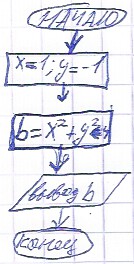 НАЧАЛО
x=1; y=-1
b=x²+y²
вывод b
конец